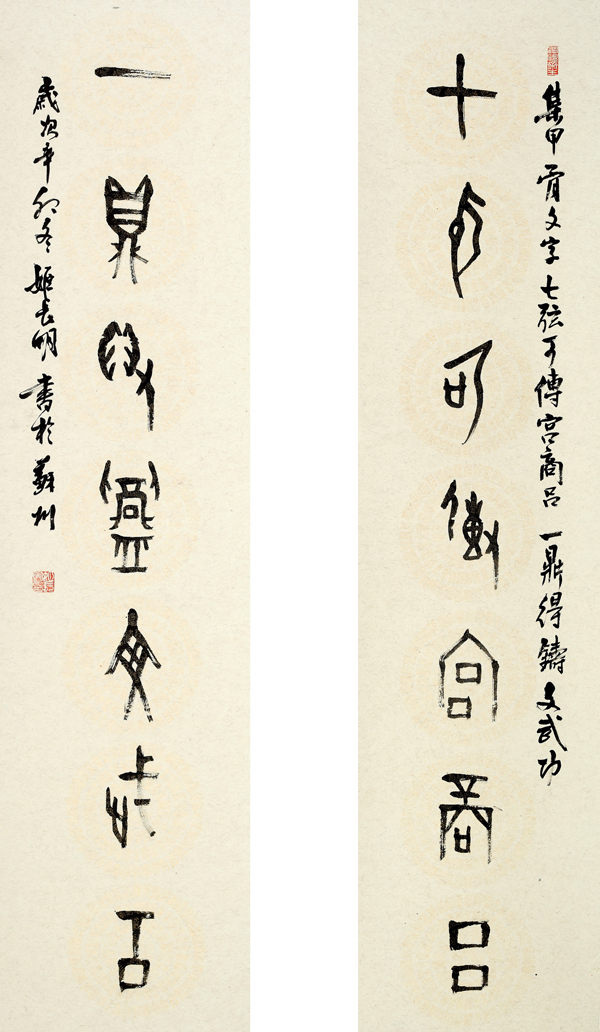 集甲骨文字 七弦可傳宮商呂 一鼎得鑄文武功
七弦可傳宮商呂
一鼎得鑄文武功
歲次辛卯冬 姬長明 書於蘇州